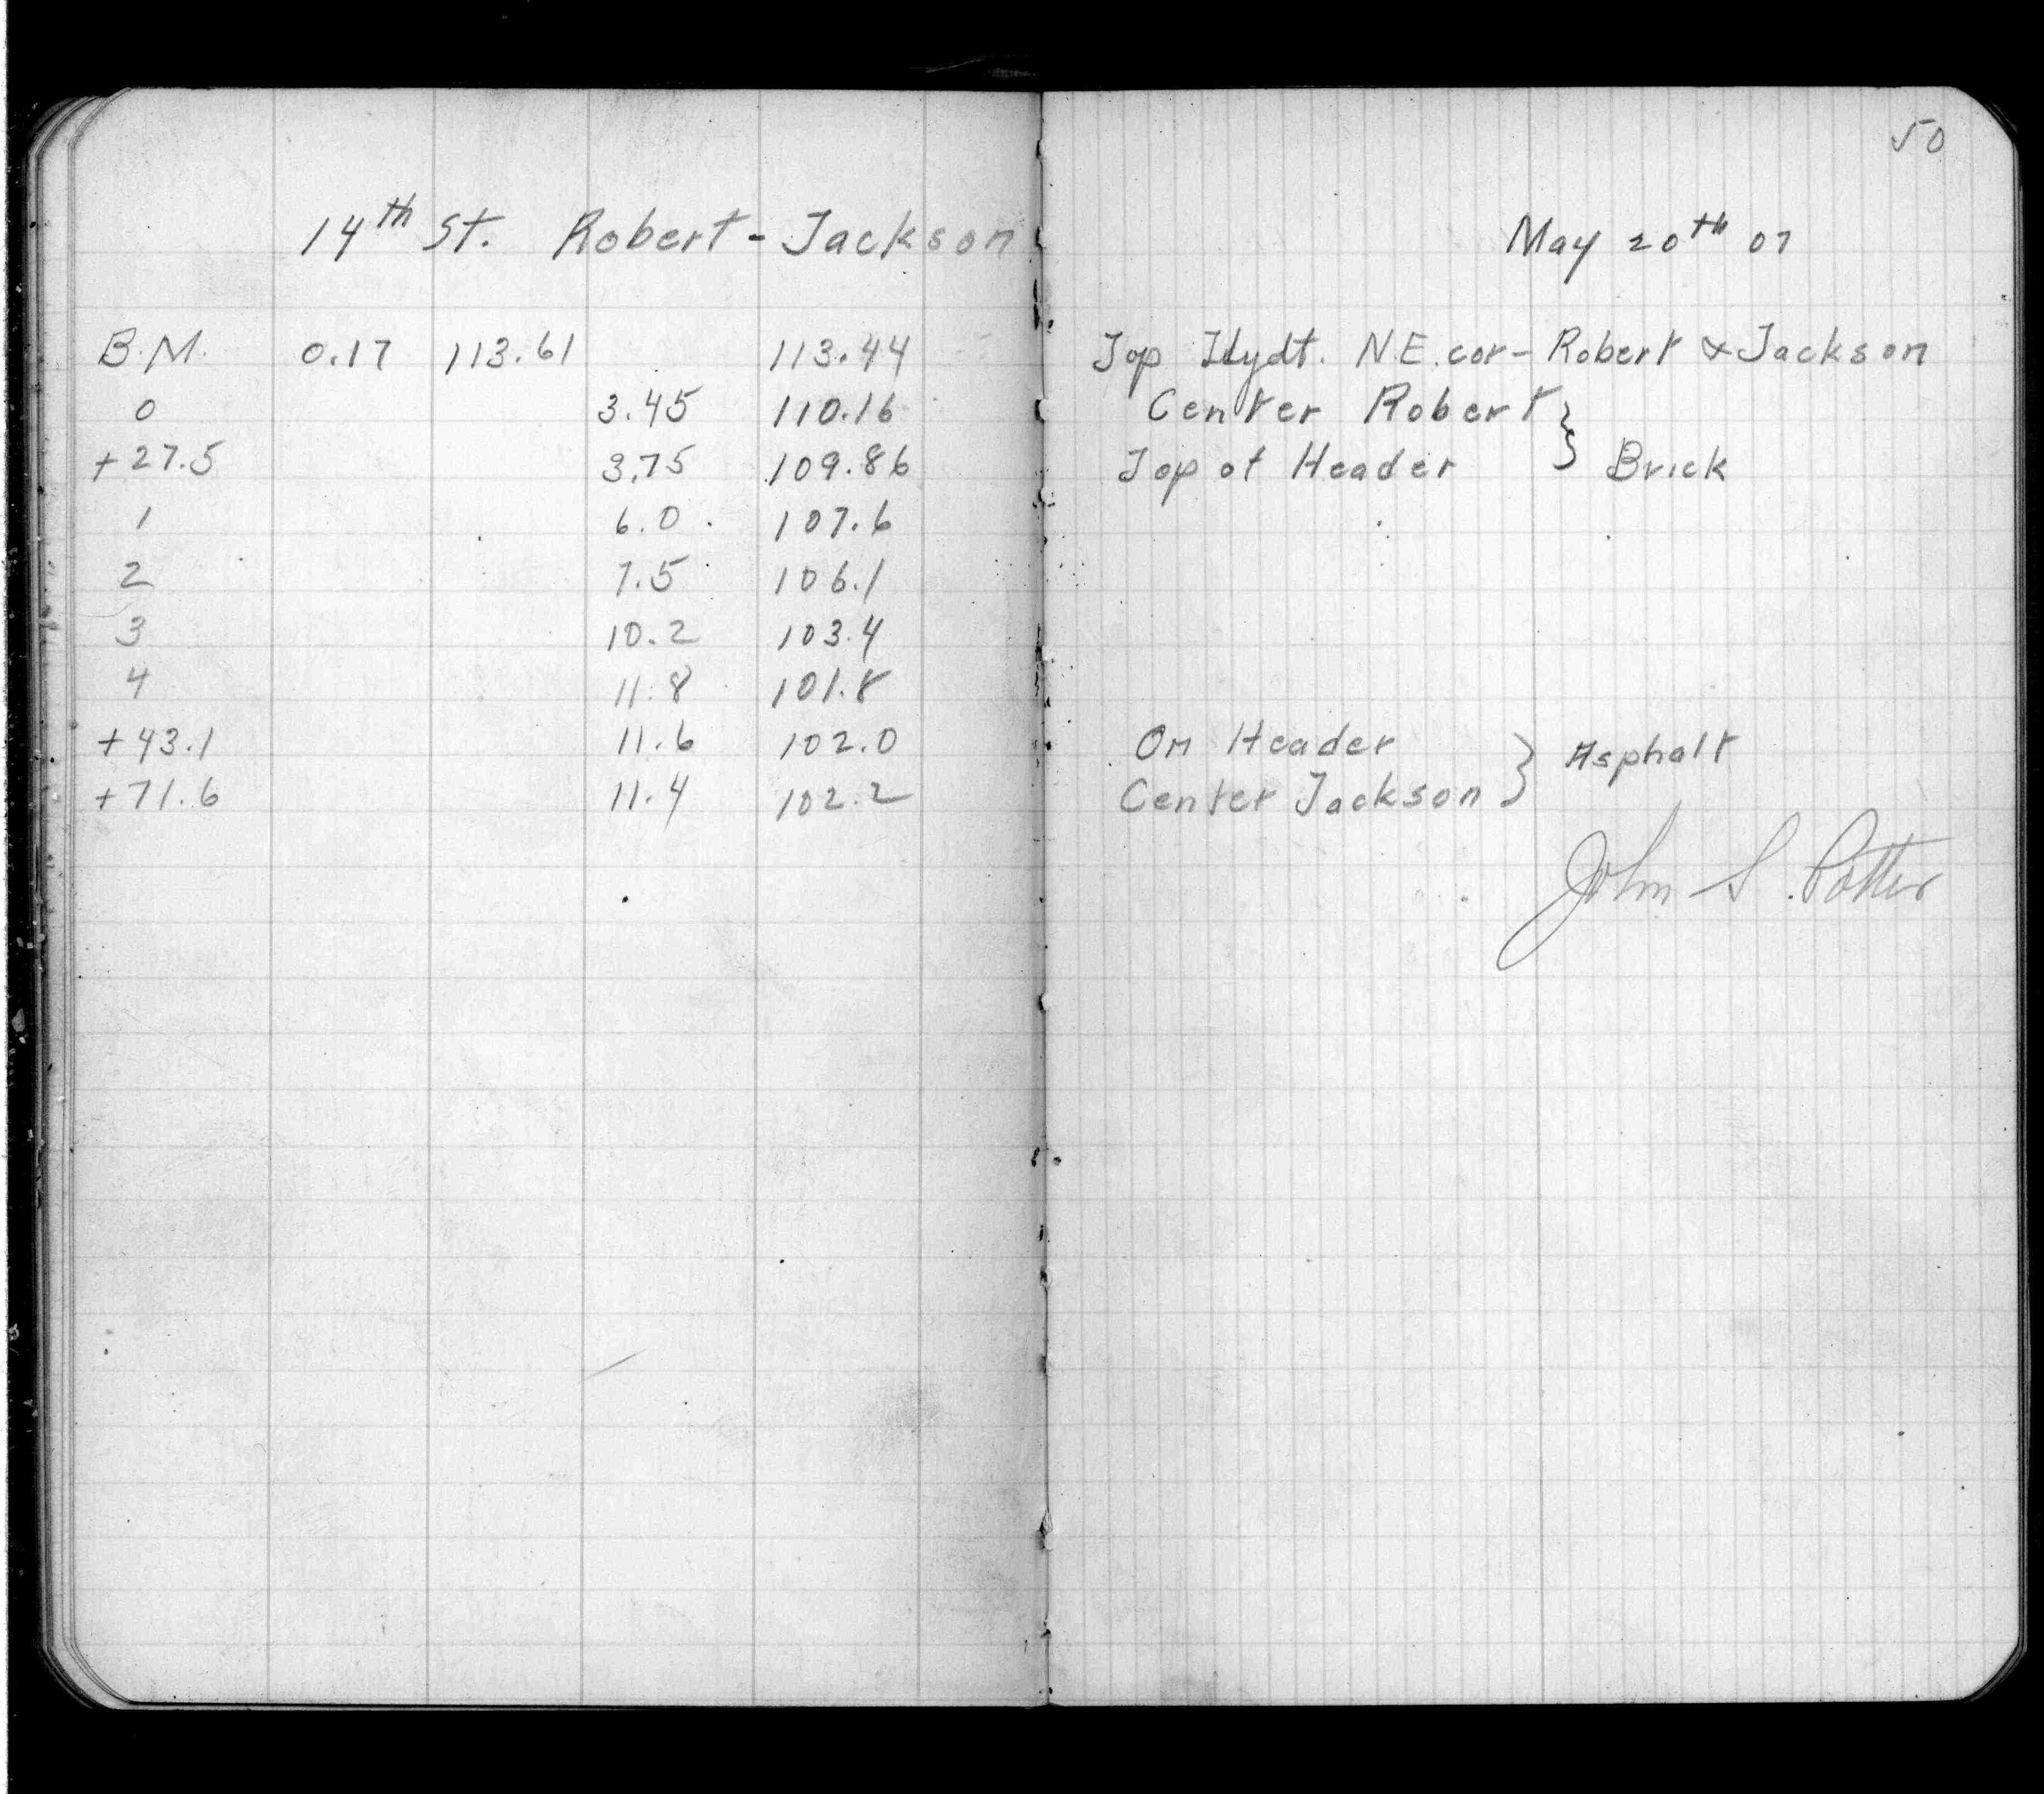 50
14th St. Robert - Jackson May 20th 07
B.M. 0.17 113.61 113.44 Top Hydt. N.E. cor - Robert & Jackson
0 3.45 110.16 Center Robert }
+27.5 3.75 109.86 Top of Header } Brick
1 6.0 107.6
2 7.5 106.1
3 10.2 103.4
4 11.8 101.8
+43.1 11.6 102.0 On Header } Asphalt
+71.6 11.4 102.2 Center Jackson }
John S. Potter